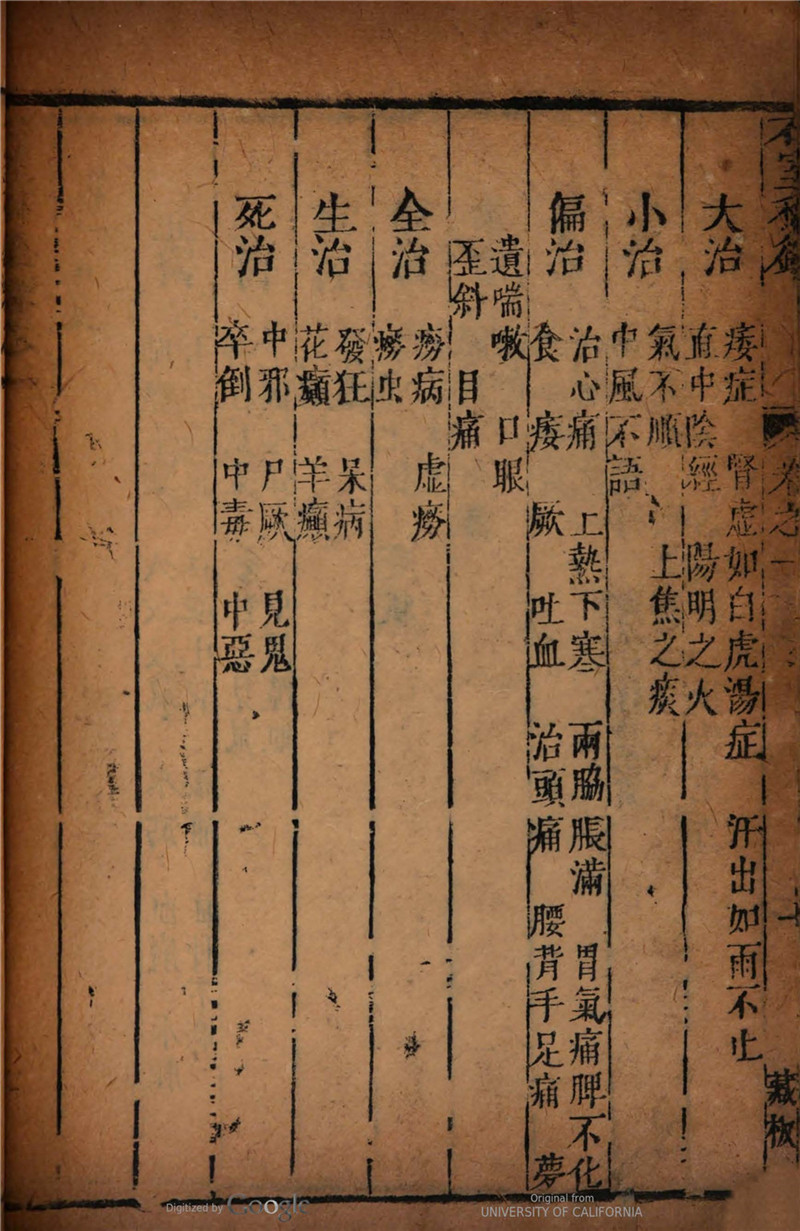 大治 痿症 腎虛如白虎湯症 汗出如雨不止
直中陰經 陽明之火
小治 氣不順 上焦之痰
中風不語
偏治 治心痛 上熱下寒 兩脇脹滿 胃氣痛脾不化
食痿 厥 吐血 治頭痛 腰背手足痛 夢
遺喘嗽 口眼
歪斜 目痛
全治 癆病 虛癆
癆虫
生治 發狂 呆病
花癲 羊癲
死治 中邪 尸厥 見鬼
卒倒 中毒 中惡
藏板
Digitized by Google
Original from
UNIVERSITY OF CALIFORNIA